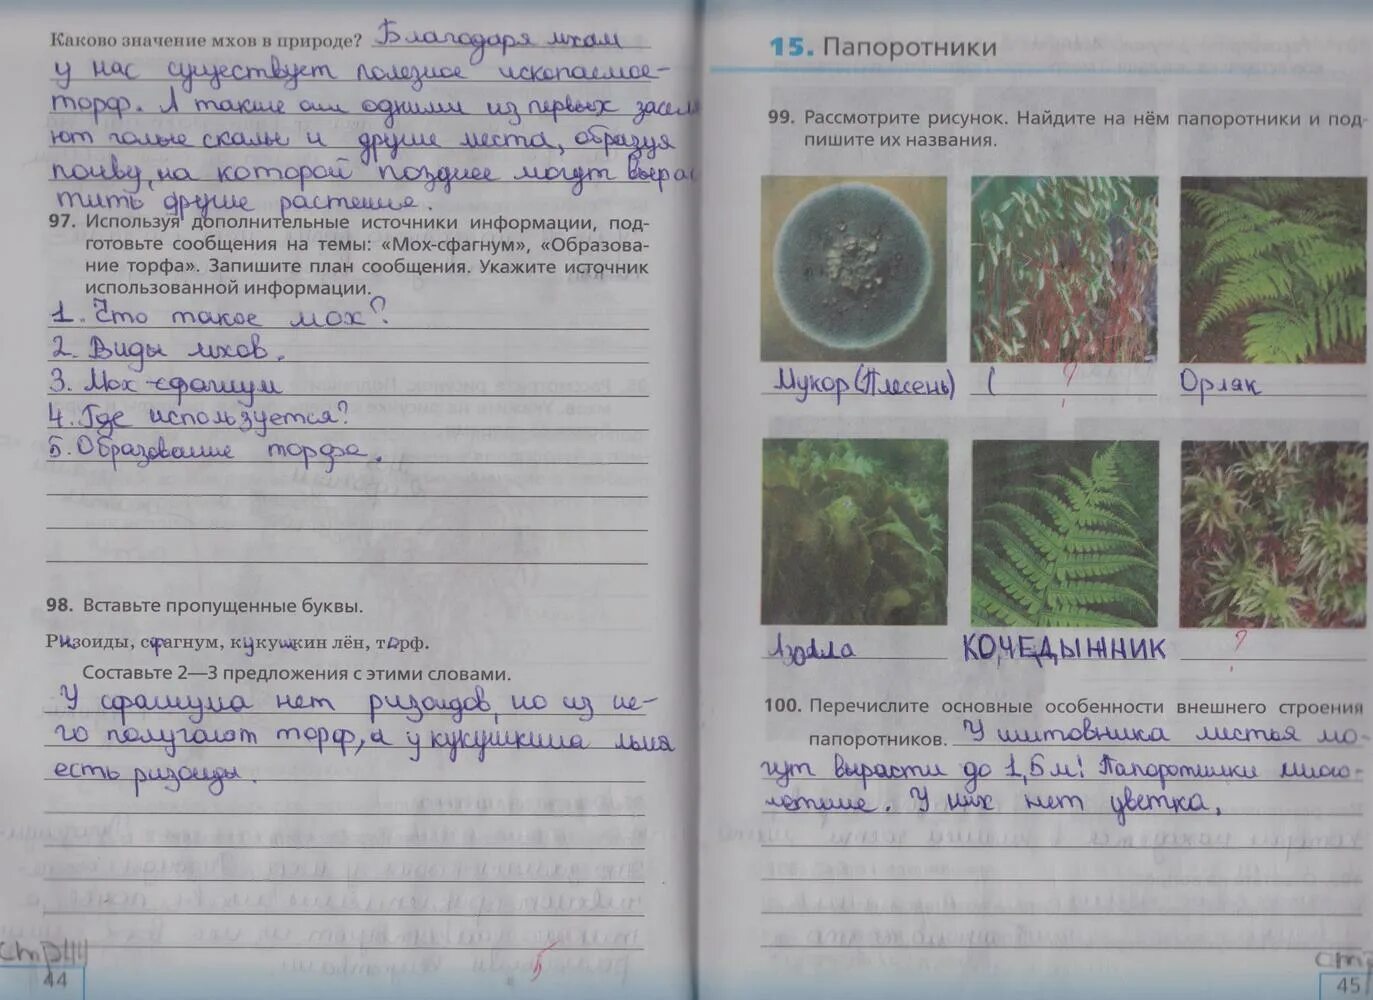 Каково значение мхов в природе? Благодаря мхам
у нас существует полезное ископаемое-
торф. А также они одними из первых засел
ют голые скалы и другие места, образуя
почву, на которой позднее могут выра
тить другие растения.
97. Используя дополнительные источники информации, под-
готовьте сообщения на темы: «Мох-сфагнум», «Образова-
ние торфа». Запишите план сообщения. Укажите источник
использованной информации.
1. Что такое мох?
2. Виды мхов.
3. Мох-сфагнум
4. Где используется?
5. Образование торфа.
98. Вставьте пропущенные буквы.
Ризоиды, сфагнум, кукушкин лён, торф.
Составьте 2—3 предложения с этими словами.
У сфагнума нет ризоидов, но из не-
го получают торф, а у кукушкина льна
есть ризоиды.
5
стр44
44
15. Папоротники
99. Рассмотрите рисунок. Найдите на нём папоротники и под-
пишите их названия.
Мукор(Плесень) ( ? Орляк
Азолла КОЧЕДЫЖНИК ?
100. Перечислите основные особенности внешнего строения
папоротников. У щитовника листья мо-
гут вырасти до 1,5м! Папоротники много-
летние. У них нет цветка.
стр
45